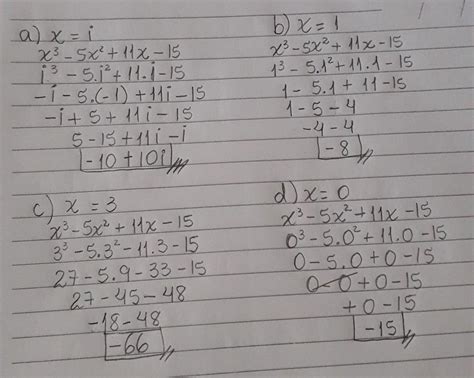 a) x = i
x³ - 5x² + 11x - 15
i³ - 5.i² + 11.i - 15
-i - 5.(-1) + 11i - 15
-i + 5 + 11i - 15
5 - 15 + 11i - i
-10 + 10i
b) x = 1
x³ - 5x² + 11x - 15
1³ - 5.1² + 11.1 - 15
1 - 5.1 + 11 - 15
1 - 5 - 4
-4 - 4
-8
c) x = 3
x³ - 5x² + 11x - 15
3³ - 5.3² - 11.3 - 15
27 - 5.9 - 33 - 15
27 - 45 - 48
-18 - 48
-66
d) x = 0
x³ - 5x² + 11x - 15
0³ - 5.0² + 11.0 - 15
0 - 5.0 + 0 - 15
0 - 0 + 0 - 15
+0 - 15
-15